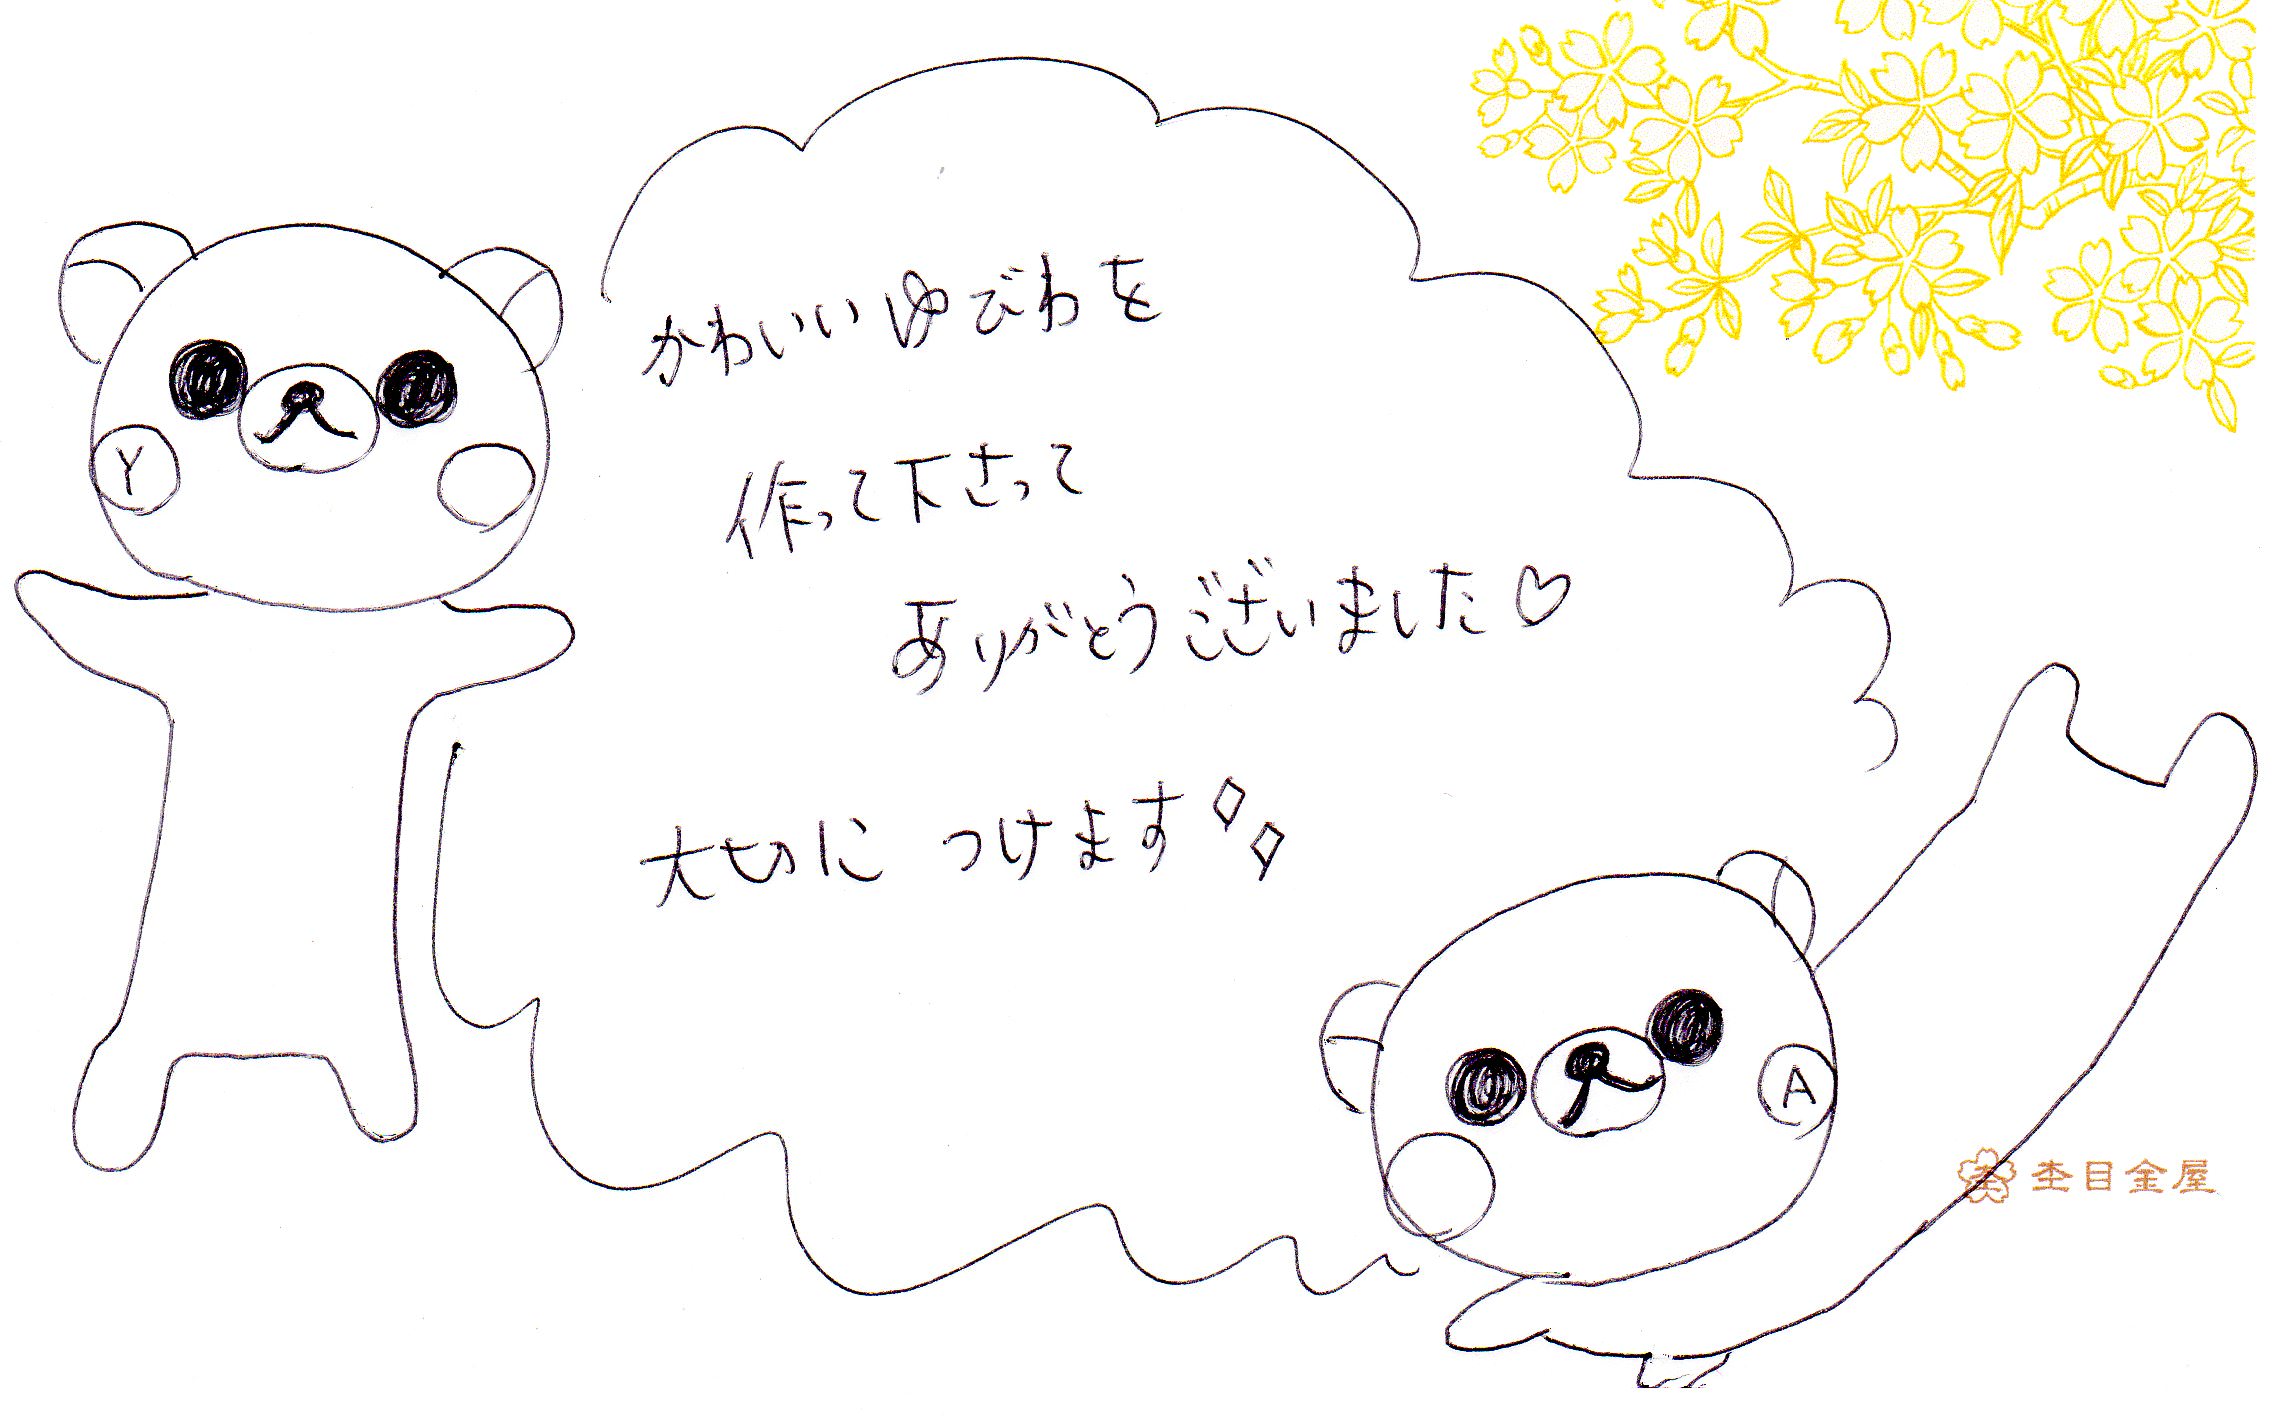 かわいいゆびわを
作って下さって
ありがとうございました♡
大切に つけます
Y
A
杢目金屋